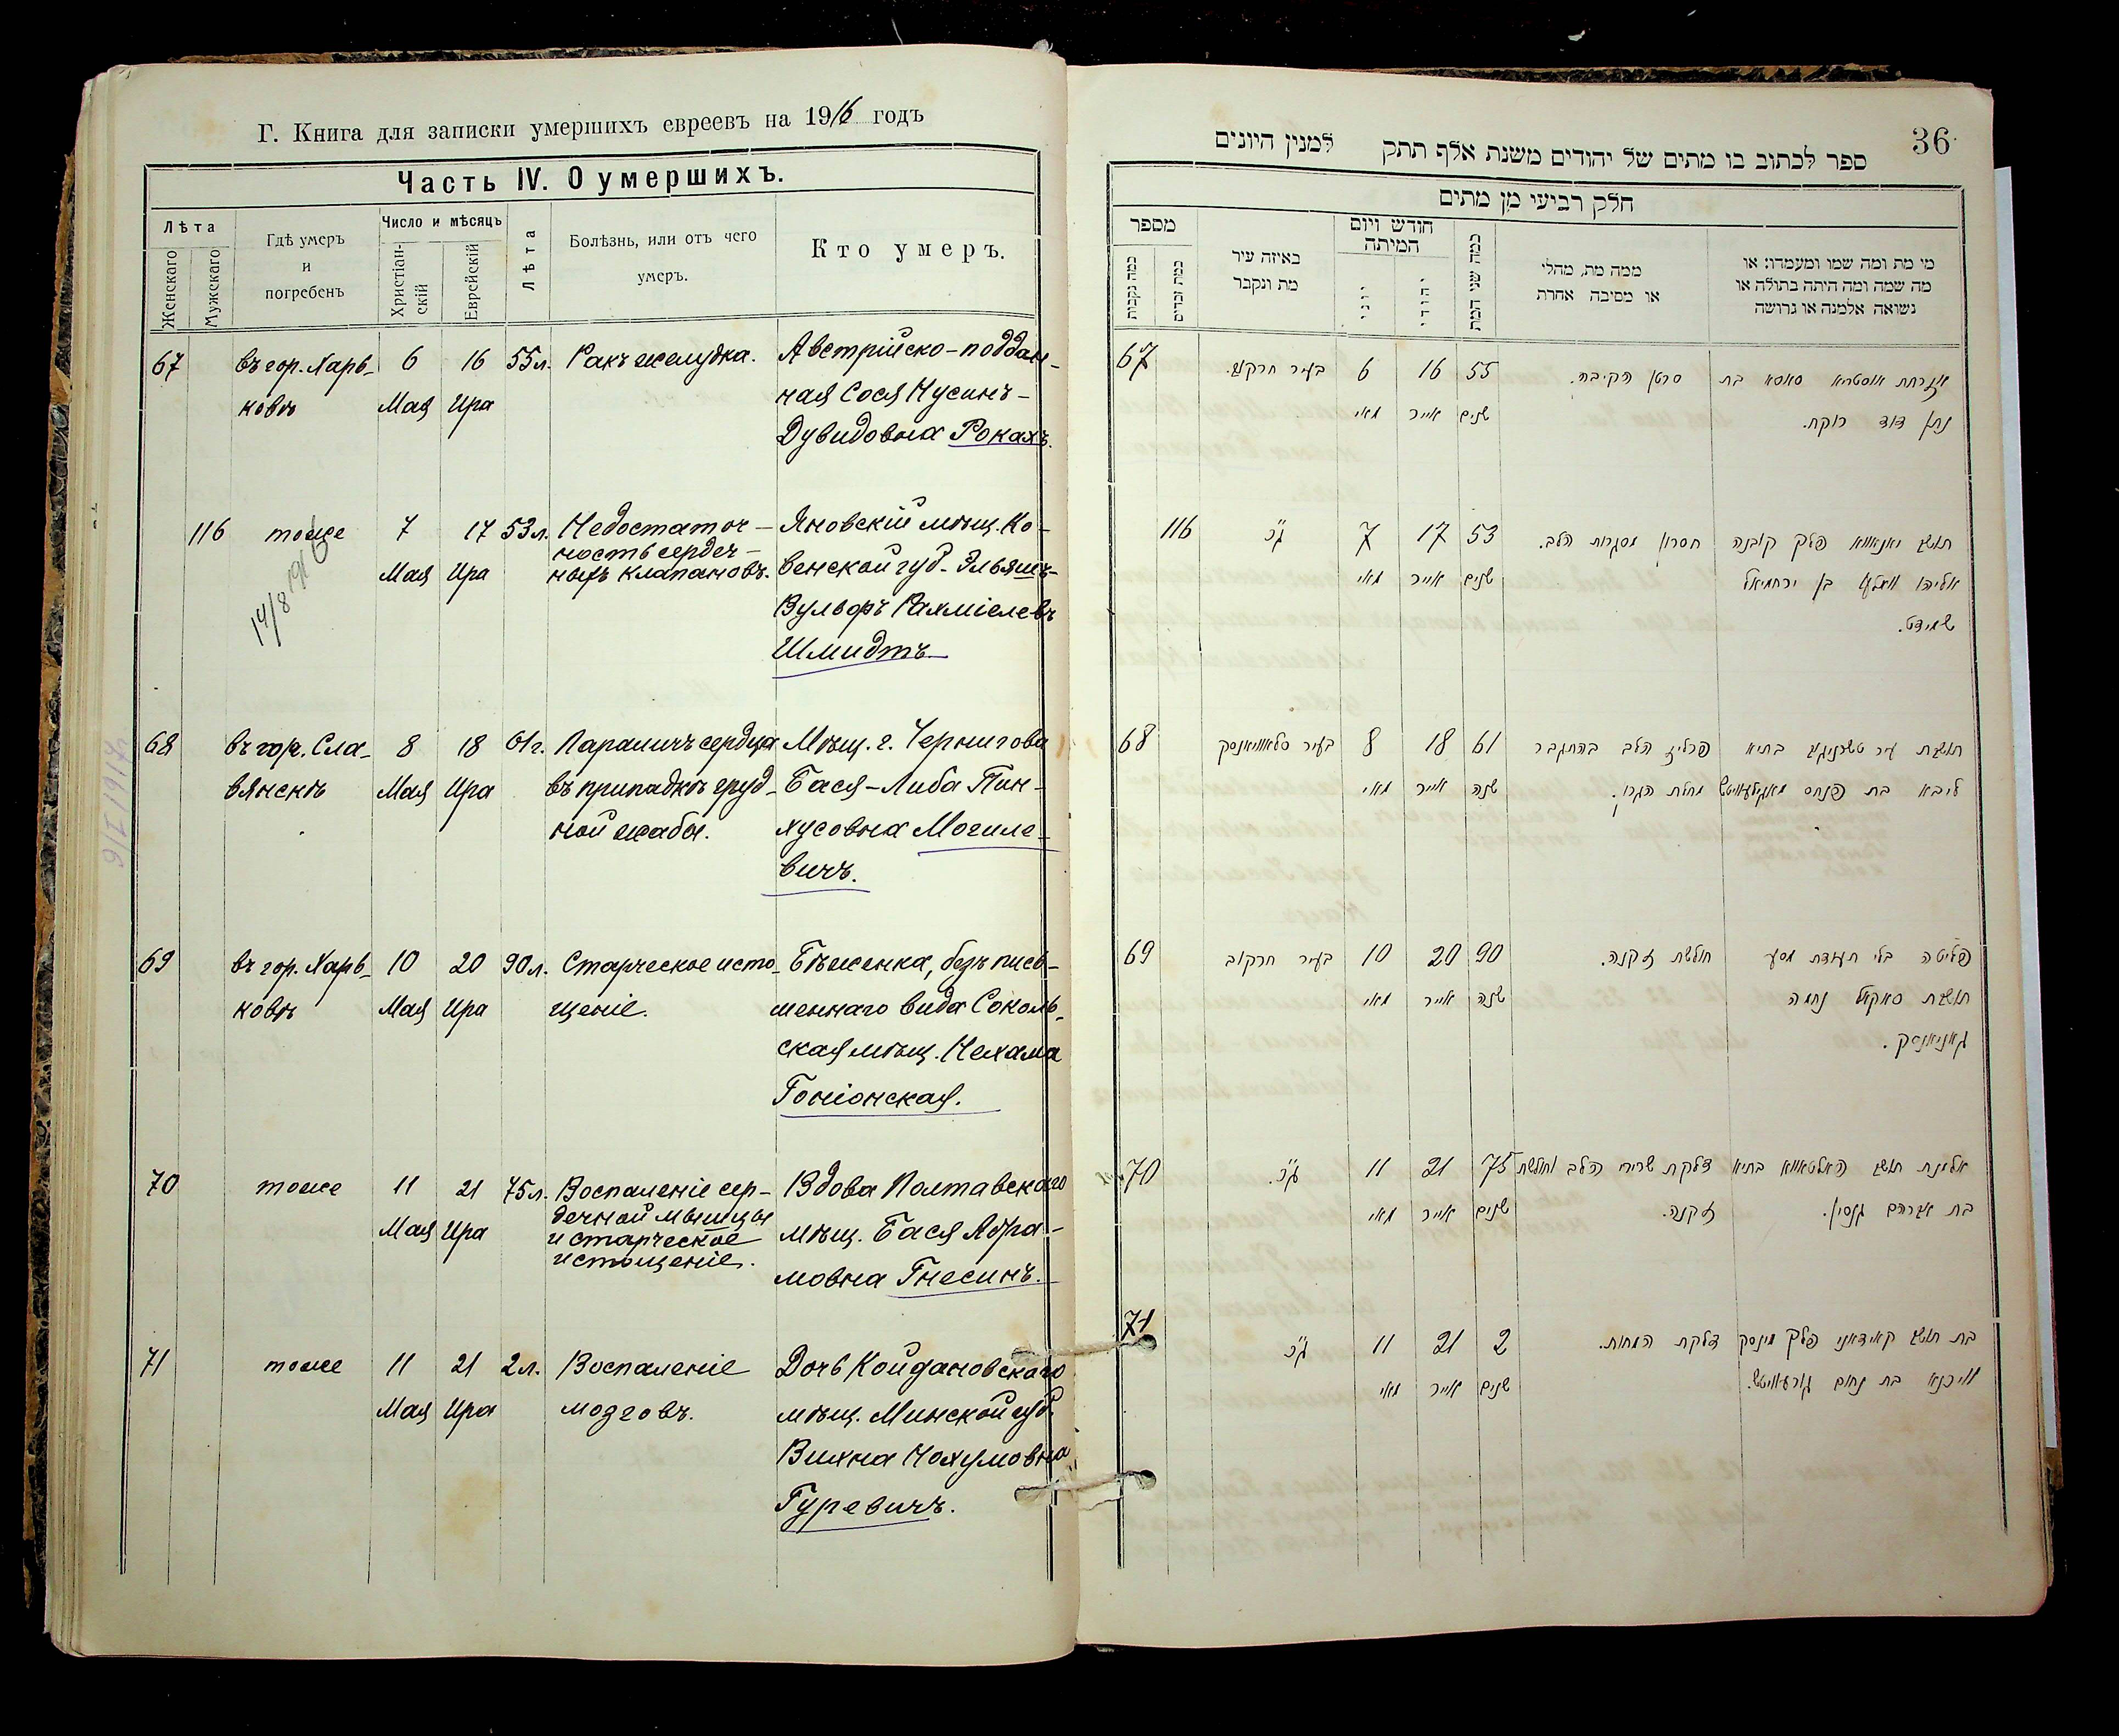 Г. Книга для записки умершихъ евреевъ на 1916 годъ
Часть IV. О умершихъ.
Лѣта
Женскаго
Мужскаго
Гдѣ умеръ
и
погребенъ
Число и мѣсяцъ
Христіан-
скій
Еврейскій
Лѣта
Болѣзнь, или отъ чего
умеръ.
Кто умеръ.
67
въ гор. Харь-
ковѣ
6
Мая
16
Ира
55 л.
Ракъ желудка.
Австрійско-поддан-
ная Сося Нусинъ-
Дувидовна Рокахъ.
116
тоже
14/8 1916
7
Мая
17
Ира
53 л.
Недостаточ-
ность сердеч-
ныхъ клапановъ.
Яновскій мѣщ. Ко-
венской губ. Эльяшъ-
Вульфъ Рахміелевъ
Шмидтъ
68
въ гор. Сла-
вянскѣ
8
Мая
18
Ира
61 г.
Параличъ сердца
въ припадкѣ груд-
ной жабы.
Мѣщ. г. Чернигова
Бася-Либа Пин-
хусовна Могиле-
вичъ.
9/I 1917
69
въ гор. Харь-
ковѣ
10
Мая
20
Ира
90 л.
Старческое исто-
щеніе.
Бѣженка, безъ пись-
меннаго вида Соколь-
ская мѣщ. Нехама
Гоніонская.
70
тоже
11
Мая
21
Ира
75 л.
Воспаленіе сер-
дечной мышцы
и старческое
истощеніе.
Вдова Полтавскаго
мѣщ. Бася Абра-
мовна Гнесинъ.
71
тоже
11
Мая
21
Ира
2 л.
Воспаленіе
мозговъ.
Дочь Койдановскаго
мѣщ. Минской губ.
Вихна Нохумовна
Гуревичъ.
36
ספר לכתוב בו מתים של יהודים משנת אלף תתק למנין היונים
חלק רביעי מן מתים
מספר
כמה נקבות
כמה זכרים
באיזה עיר
מת ונקבר
חודש ויום
המיתה
יוני
יהודי
כמה שני המת
ממה מת, מחלי
או מסיבה אחרת
מי מת ומה שמו ומעמדו: או
מה שמה ומה היתה בתולה או
נשואה אלמנה או גרושה
67
בעיר חרקוב.
6
מאי
16
אייר
55
שנים
סרטן הקיבה.
אזרחת אוסטריא סאסא בת
נתן דוד רוקח.
116
ג״כ
7
מאי
17
אייר
53
שנים
חסרון מסגרות הלב.
תושב יאנאווא פלך קובנה
אליהו וואלף בן ירחמיאל
שמידט.
68
בעיר סלאוויאנסק
8
מאי
18
אייר
61
שנה
פרליז הלב בהתגבר
מחלת הגרון.
תושבת עיר טשרניגוב בתיא
ליבא בת פנחס מאגילעוויטש
69
בעיר חרקוב
10
מאי
20
אייר
90
שנה
חולשת זקנה.
פליטה בלי תעודת מסע
תושבת סאקאל נחמה
גאניאנסק.
70
ג״כ.
11
מאי
21
אייר
75
שנים
דלקת שרירי הלב וחולשת
זקנה.
אלמנת תושב פאלטאווא בתיא
בת אברהם גנסין.
71
ג״כ
11
מאי
21
אייר
2
שנים
דלקת המוח.
בת תושב קאידאני פלך מינסק
וויכנא בת נחום גורעוויטש.